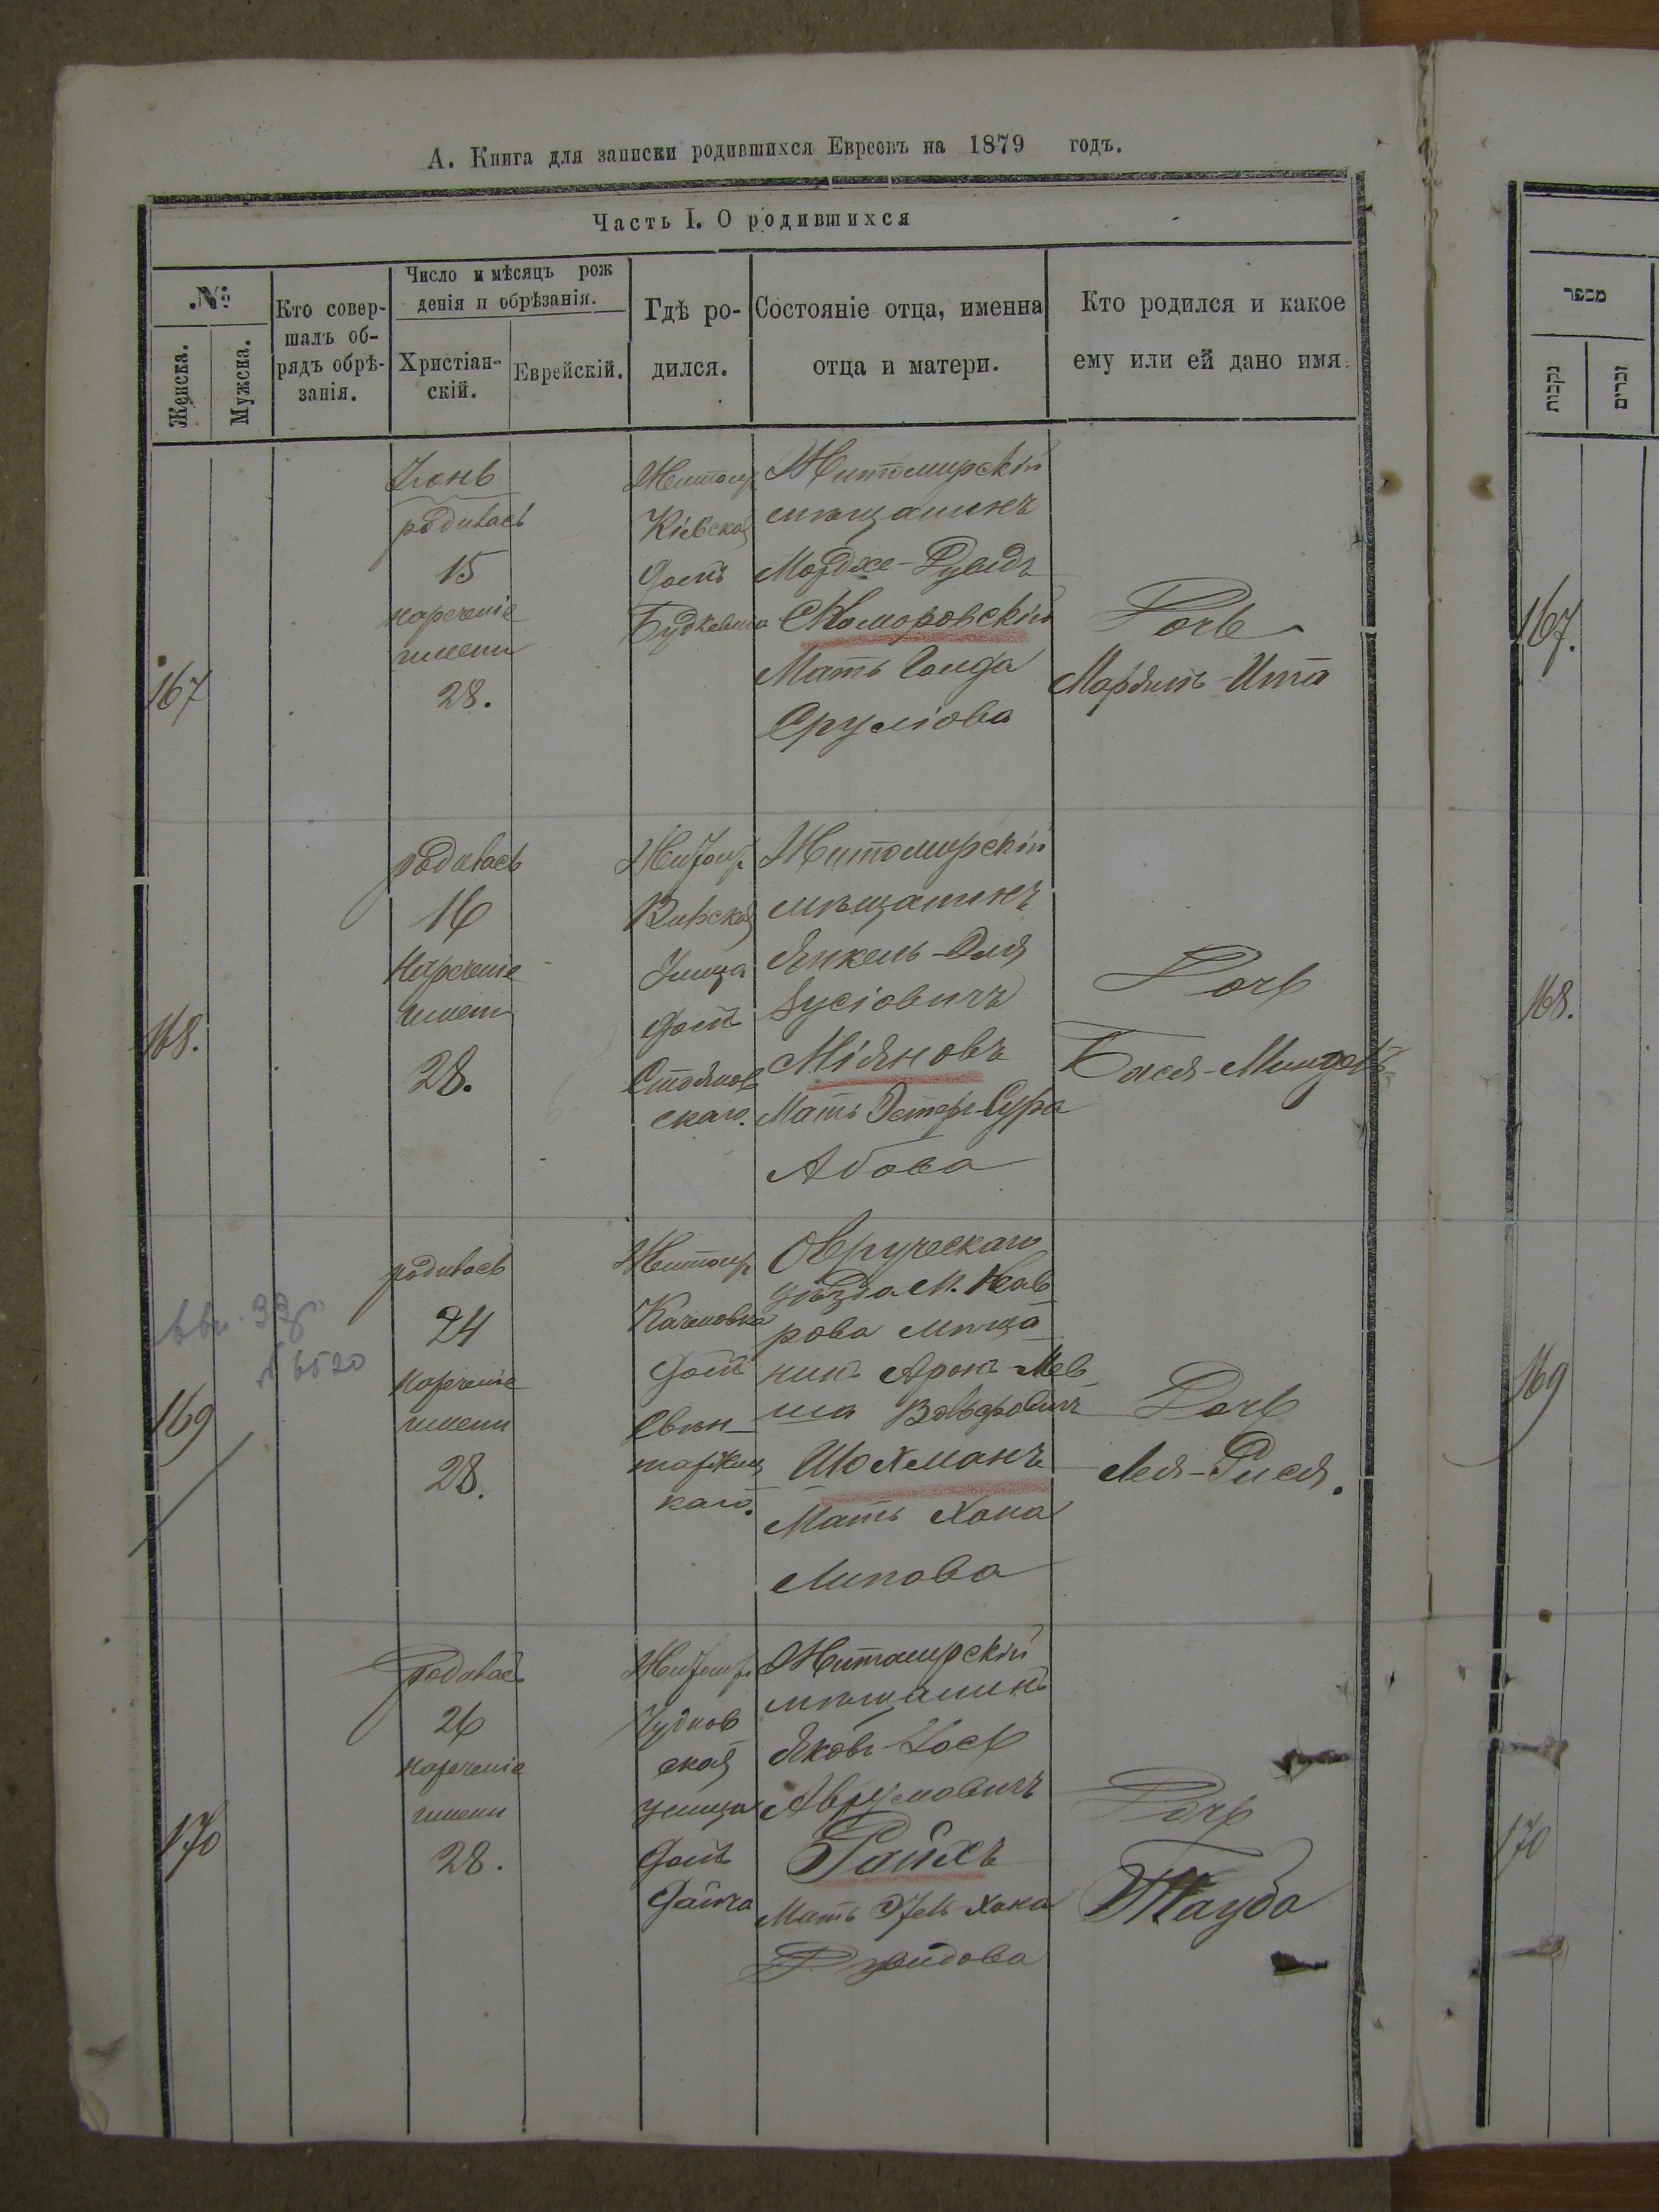 А. Книга для записки родившихся Евреовъ на 1879 годъ.
Часть I. О родившихся
№
Женска.
Мужска.
Кто совер-
шалъ об-
рядъ обрѣ-
занія.
Число и мѣсяцъ рож
денія и обрѣзанія.
Христіан-
скій.
Еврейскій.
Гдѣ ро-
дился.
Состояніе отца, именна
отца и матери.
Кто родился и какое
ему или ей дано имя.
מספר
נקבות
זכרים
167
Іюнь
родилась
15
нареченіе
имени
28.
Житомр
Кіевская
домъ
Житомирскій
мѣщанинъ
Мордхе-Рувидъ
Коморовскій
Мать Голда
Сруліова
Дочь
Марьямъ-Ита
167.
168.
родилась
16
Нареченіе
имени
28.
Житомр.
Вильская
Улица
домъ
Стоянов
скаго.
Житомирскій
мѣщанинъ
Янкель-Эля
Зусіовичъ
Міяновъ
Мать Эстеръ-Сура
Абова
Дочь
Бася-Миндель
168.
169
родилась
24
нареченіе
имени
28.
Житомр
домъ
Свен-
таржиц
каго.
Овруческаго
уѣзда М. Нав
рова мѣща
нинъ Аронъ-Мев
ша Вольфовичъ
Шохманъ
Мать Хана
Липова
Дочь
Лея-Рися.
169
170
родилась
26
нареченіе
имени
28.
Житомр.
Чуднов
ская
улица
домъ
Дайча
Житомирскій
мѣщанинъ
Яковъ-Іось
Аврумовичъ
Райхъ
Мать Этель Хана
Дувидова
Дочь
Тауба
170